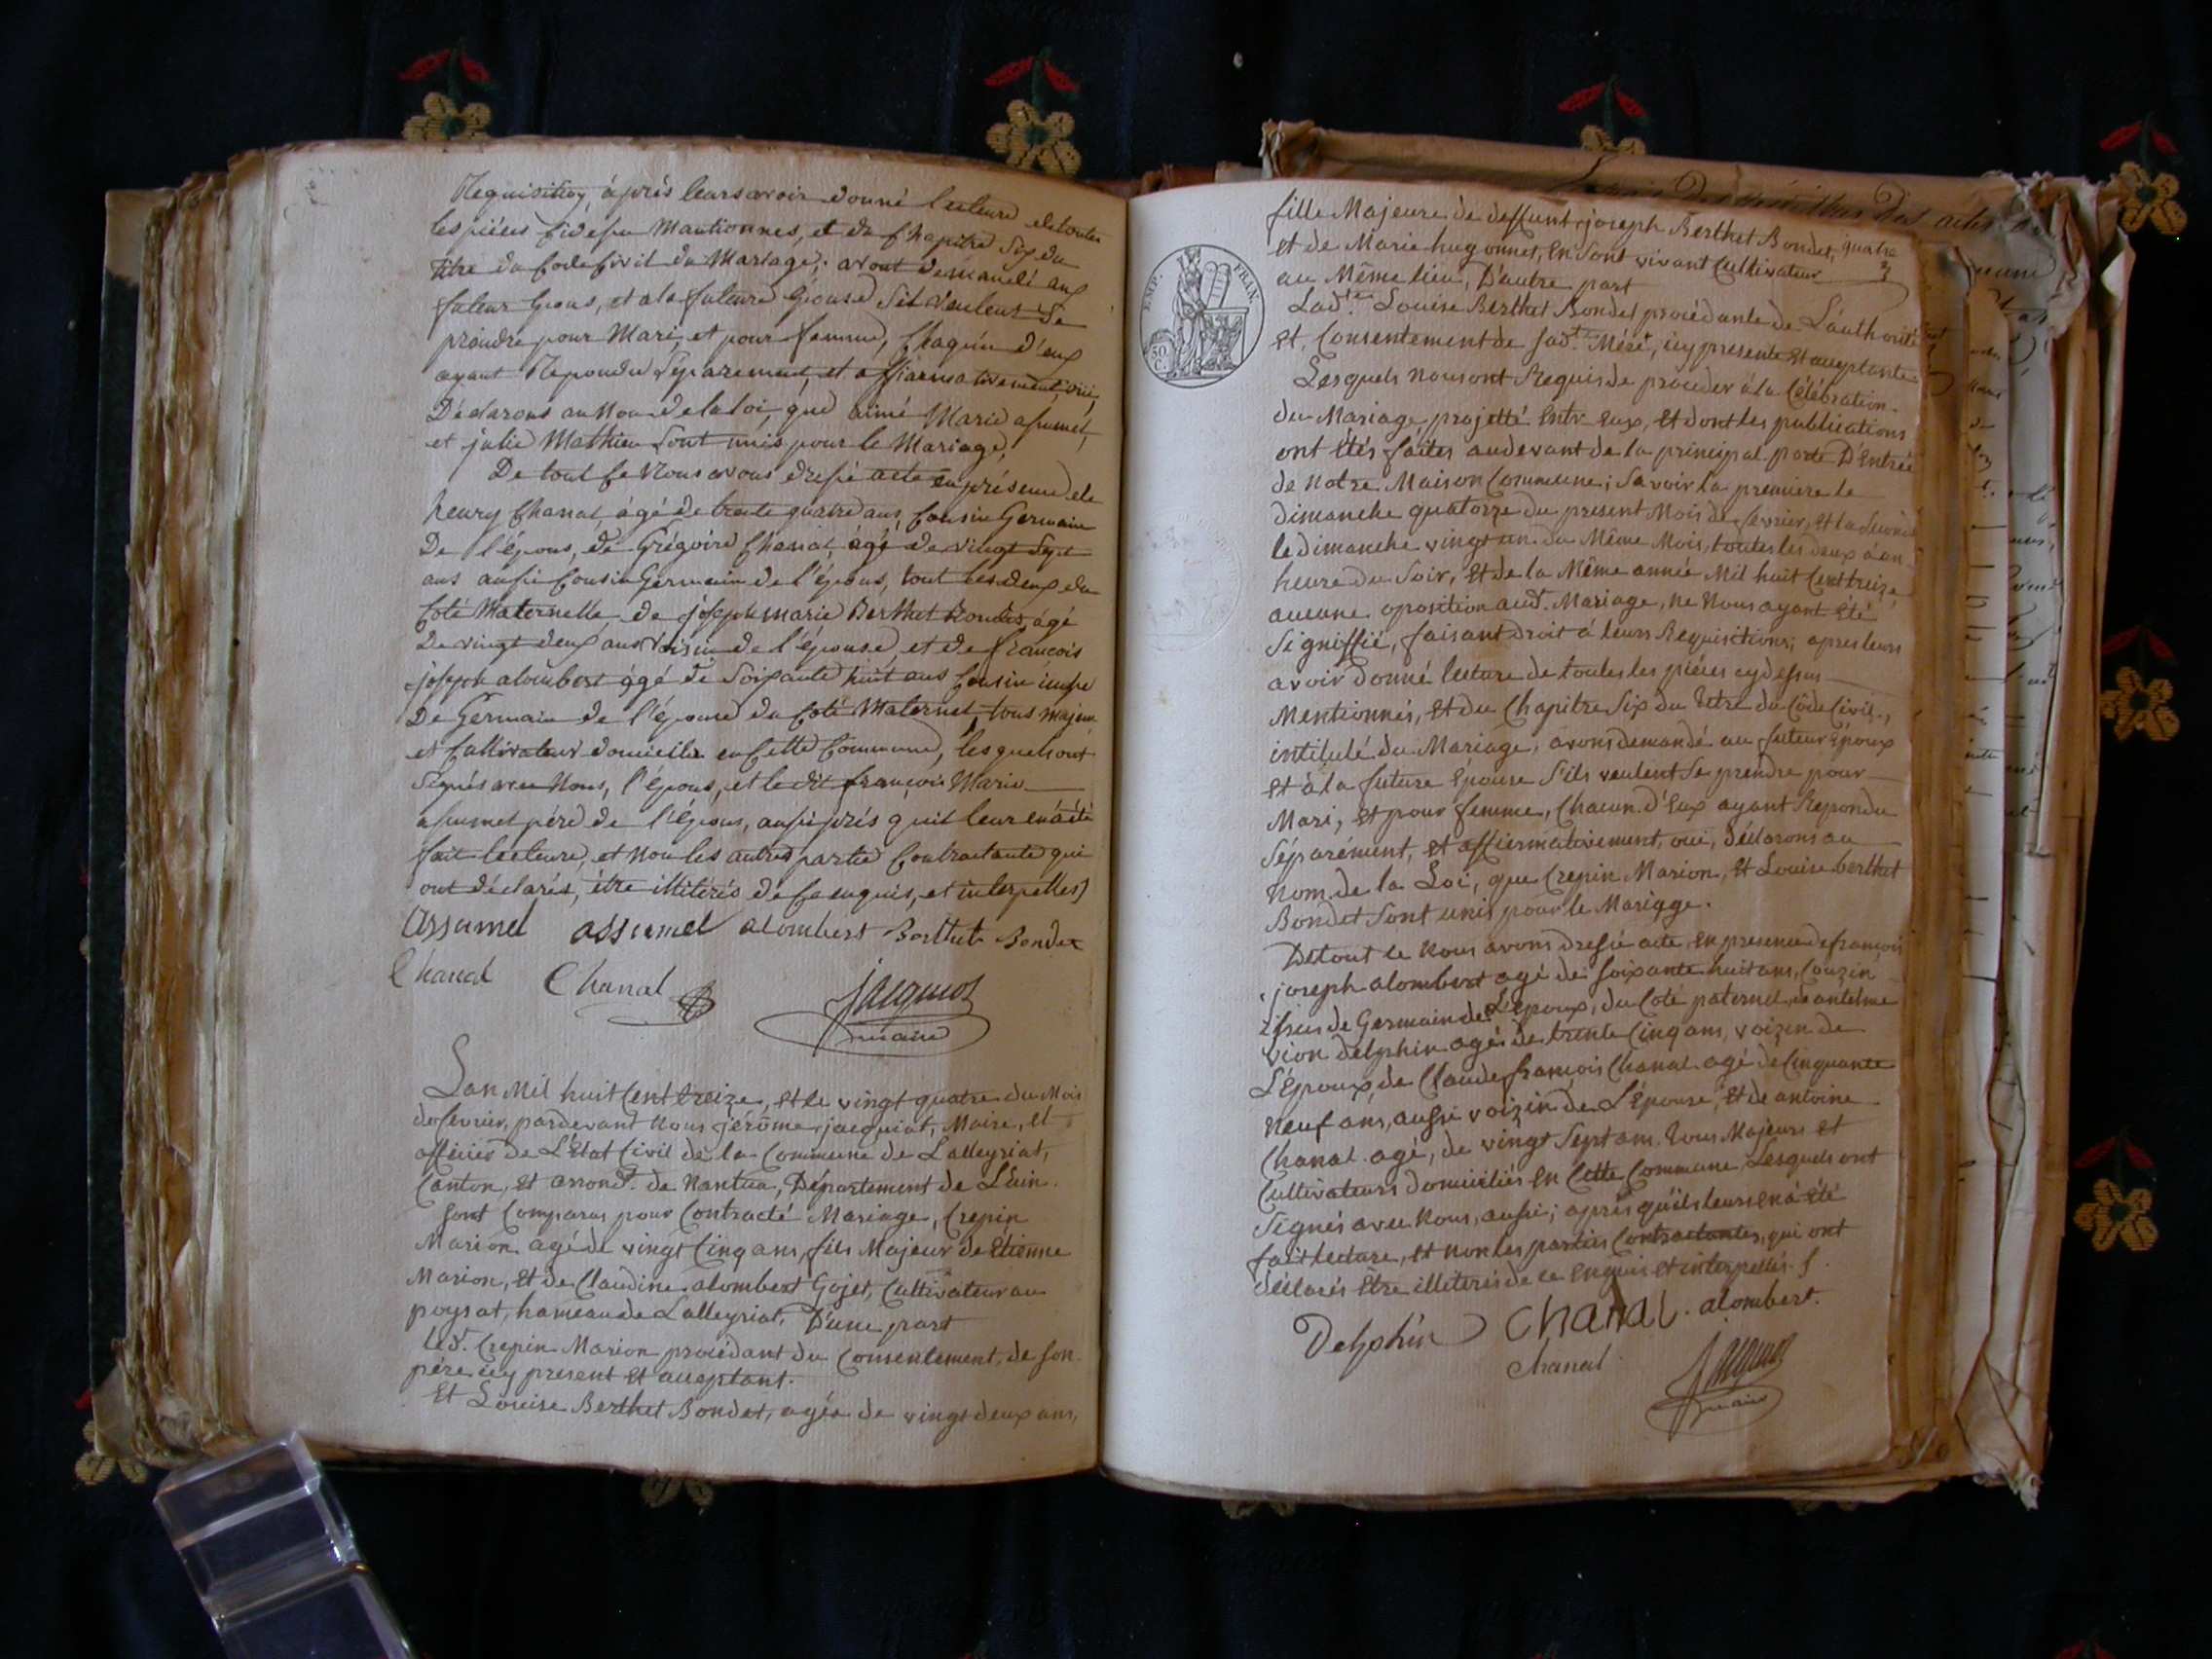 Requisition, àprés leurs avoir donné lecture de toutes
les piéces ci dessu mantionnes, et du Chapitre Six du
titre du Code Civil du Mariage; avont demandé aux
futeur Epous, et a la futeure Epouse s'il veulent se
prandre pour Mari, et pour femme, Chaqu'un d'eux
ayant Repondu séparement, et affiarmativement, oui,
Déclarons au Nom de la loi, que aimé Marie assumel,
et julie Mathieu sont unis pour le Mariage,
De tout Ce Nous avons dressé acte en présence de
henry Chanal, âgé de trente quatre ans, Cousin Germain
De l'épous, de Grégoire Chanal, âgé de vingt Sept
ans aussi Cousin Germain de l'épous, tout les deux du
Coté Maternelle, de joseph marie Berthet Bondet, âgé
De vingt deux ans Voisin de l'épouse, et de francois
joseph alombert âgé de Soixante huit ans Cousin issue
De Germain de l'épouse du Coté Maternel, tous majeur
et Cultivateur domicilie en Cette Commune, lesquels ont
Signés avec Nous, l'épous, et le dit françois Marie
assumel pére de l'Epous, aussi prés quil leur en á été
fait lecteure, et Non les autres partie Contractante qui
ont déclarés, étre illitérés de Ce enquis, et interpellés)
Assumel assumel alombert Berthet Bondet
Chanal Chanal Jacquiot
maire
Lan Mil huit Cent treize, et le vingt quatre du Mois
de fevrier, pardevant Nous jérôme jacquiot, Maire, et
officier de L'Etat Civil de la Commune de Lalleyriat,
Canton, et arrondt. de Nantua, Département de L'ain.
Sont Comparus pour Contracté Mariage, Crepin
Marion agé de vingt Cinq ans, fils Majeur de Etienne
Marion, et de Claudine alombert Gojet, Cultivateur au
poysat, hameau de Lalleyriat, D'une part
Led. Crepin Marion procédant du Consentement, de son
pére icy present et acceptant.
Et Louise Berthet Bondet, agée de vingt deux ans,
EMP. FRAN.
50 C.
fille Majeure de deffunt joseph Berthet Bondet, quatre
et de Marie hugonnet, en sont vivant Cultivateur
au Même lieu, D'autre part
Ladte. Louise Berthet Bondet procédante de L'authorité
et, Consentement de sadte. Mére, icy presente et acceptante.
Lesquels nous ont Requis de proceder à la Célébration.
du Mariage projetté entr'eux, et dont les publications
ont étés faites audevant de la principal porte D'Entrée
de notre Maison Commune; savoir la premiere le
dimanche quatorze du present Mois de fevrier, et la seconde
le dimanche vingt un du Même Mois, toutes les deux a un
heure du Soir, et de la Même année Mil huit Cent treize
aucune oposition aud. Mariage, ne Nous ayant été
Signiffié, faisant droit à leurs Requisitions; apres leurs
avoir donné lecture de toutes les piéces cy dessus
Mentionnés, et du Chapitre Six du titre du Côde Civil,
intitulé du Mariage, avons demandé au futeur époux
et à la future épouse s'ils veulent se prendre pour
Mari, et pour femme, Chacun d'eux ayant Repondu
Séparément, et affiermativement, oui, déclarons au
Nom de la Loi, que Crepin Marion, et Louise berthet
Bondet sont unis pour le Mariage.
De tout ce Nous avons dressé acte, en presence de françois
joseph alombert agé de soixante huit ans, Couzin
issus de Germain de L'époux, du Coté paternel, de antelme
vion delphin agé de trente Cinq ans, voizin de
L'Epoux, de Claude françois Chanal agé de Cinquante
neuf ans, aussi voizin de L'épouse, et de antoine
Chanal agé, de vingt Sept ans. tous Majeurs et
Cultivateurs domiciliés en Cette Commune Lesquels ont
Signés avec Nous, aussi; après qu'ils leurs en à été
fait lecture, et non les parties Contractantes, qui ont
déclarés être illeterés de ce enquis et interpellés.
Delphin Chanal. alombert.
Chanal Jacquiot
maire